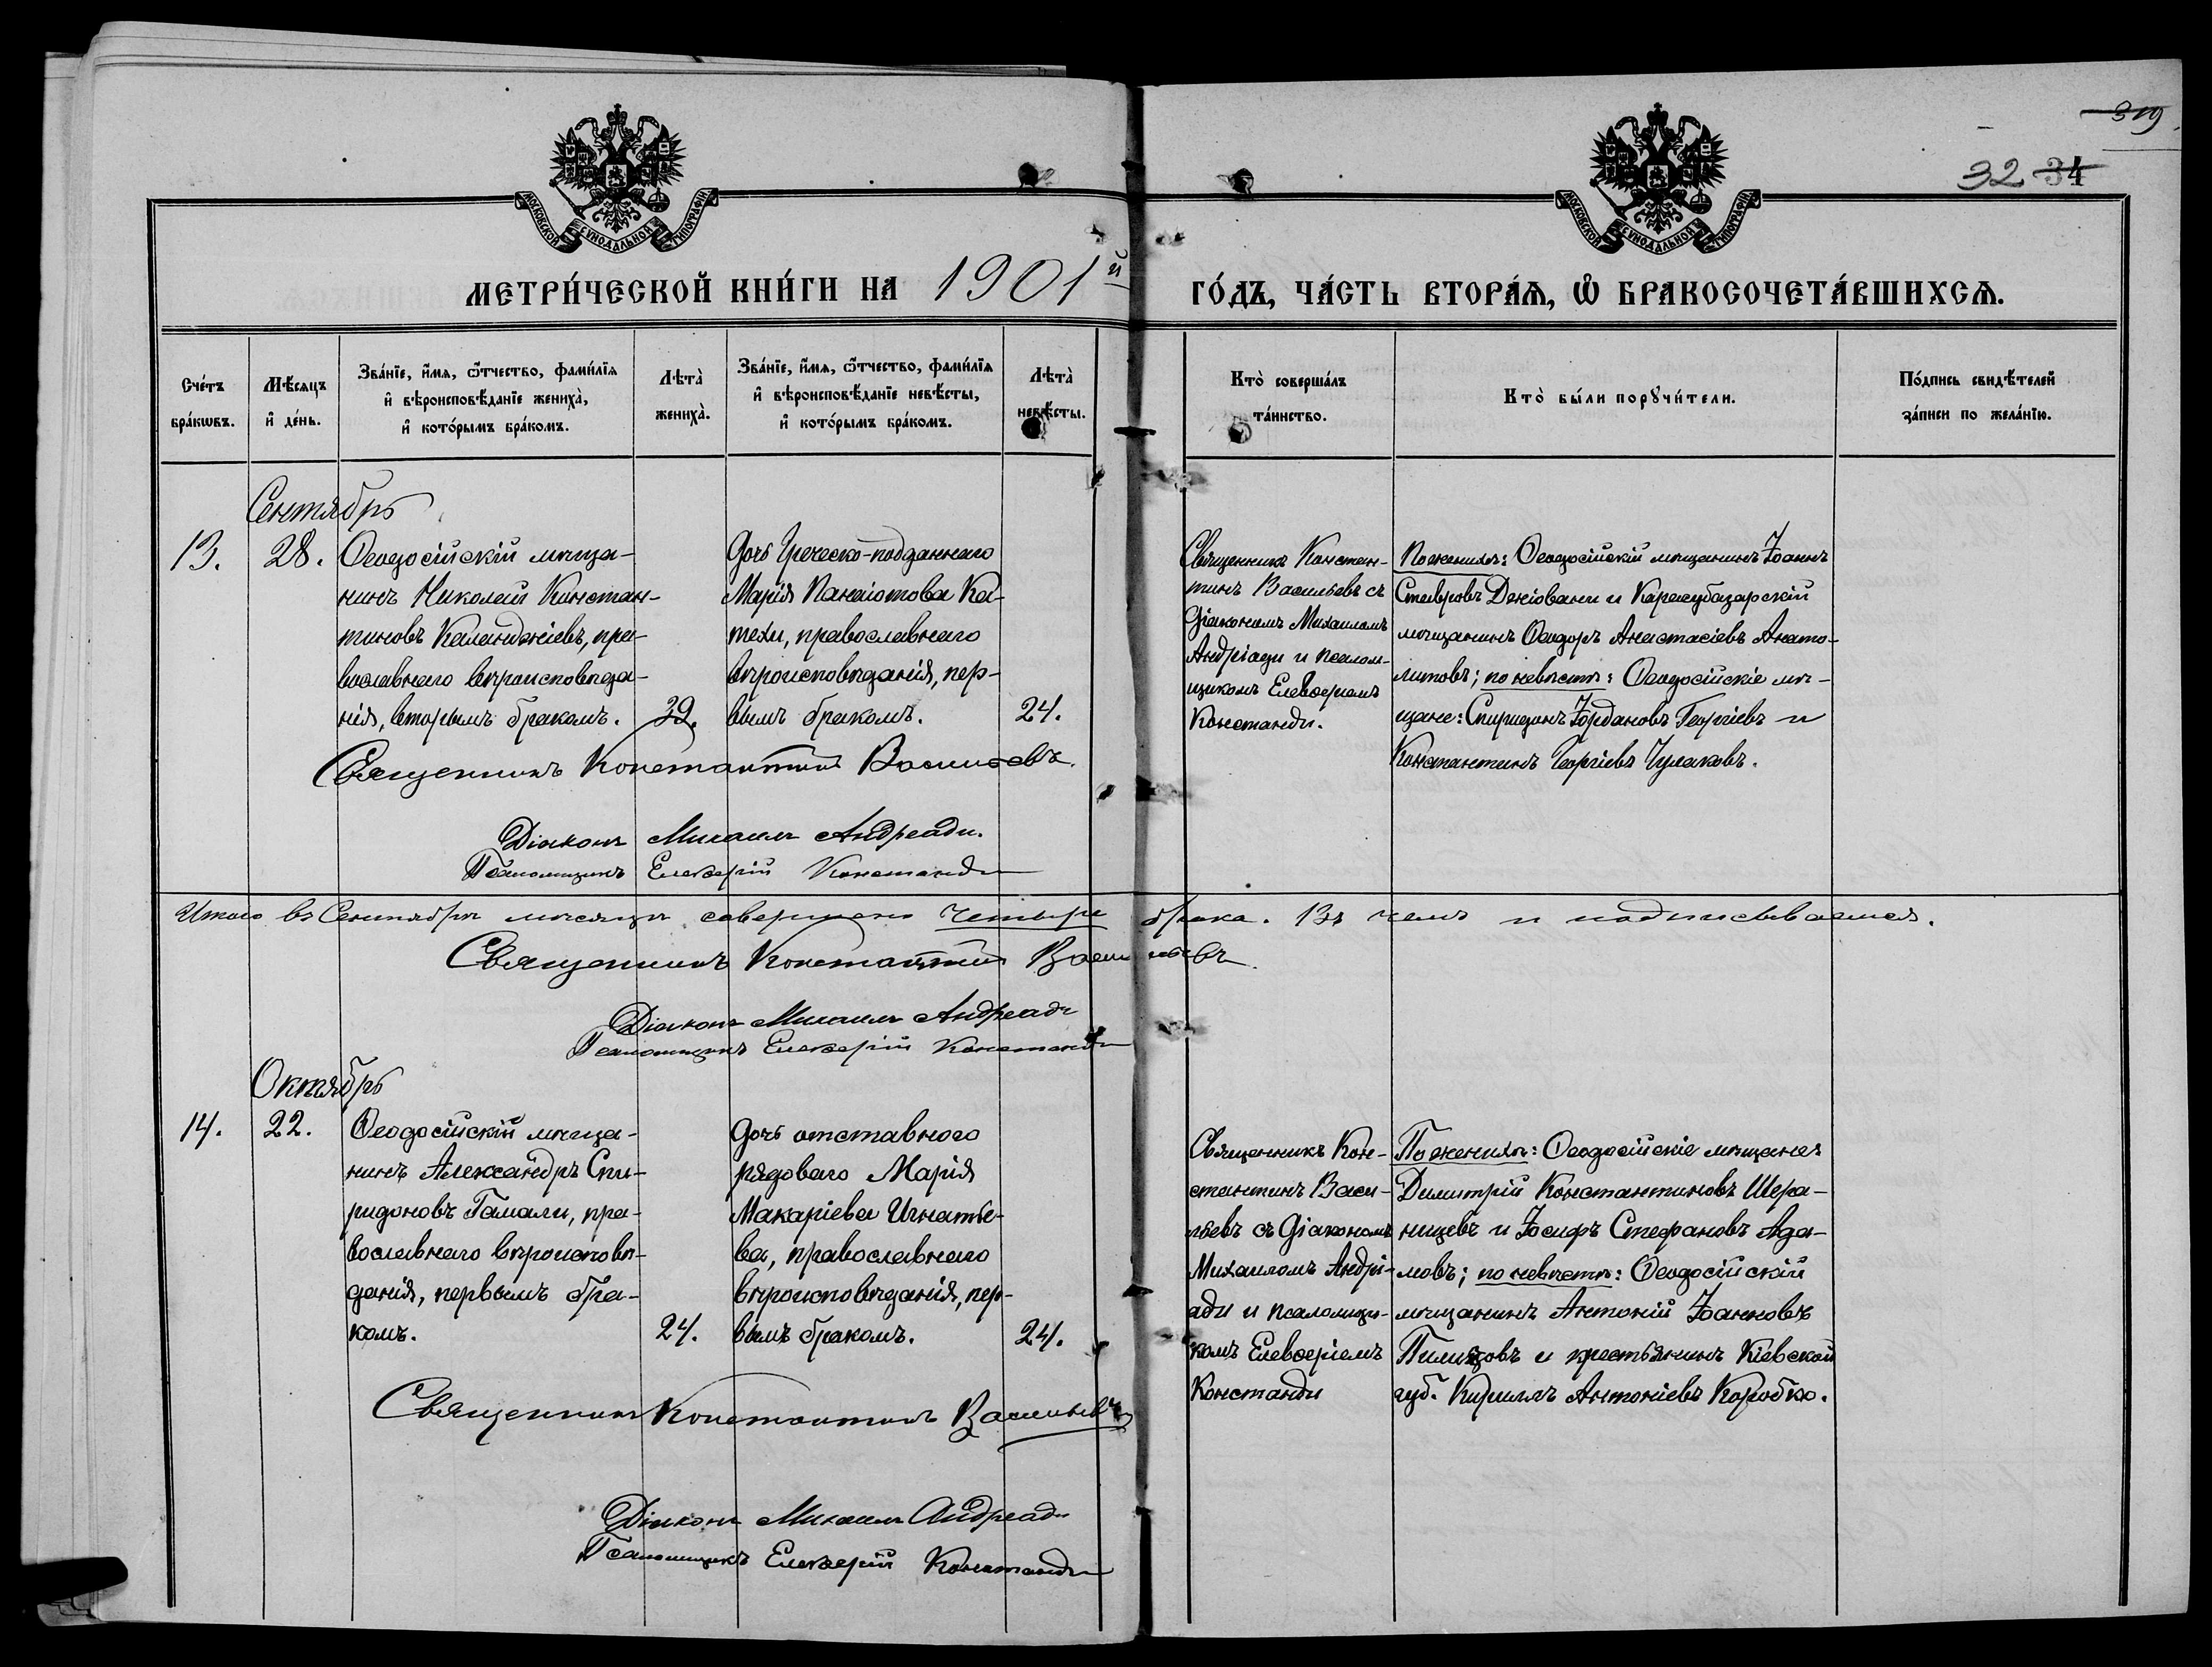 319
32 34
МОСКОВСКОЙ СѴНОДАЛЬНОЙ ТИПОГРАФІИ
МОСКОВСКОЙ СѴНОДАЛЬНОЙ ТИПОГРАФІИ
МЕТРИ́ЧЕСКОЙ КНИ́ГИ НА 1901й ГО́ДЪ, ЧА́СТЬ ВТОРА́Я, Ѡ БРАКОСОЧЕТА́ВШИХСЯ.
Сче́тъ
бра́кωвъ.
Мѣ́сяцъ
и҆ де́нь.
Зва́нїе, и҆́мя, ѻ҆́тчество, фами́лїя
и҆ вѣроисповѣ́данїе жениха̀,
и҆ кото́рымъ бра́комъ.
Лѣта̀
жениха̀.
Зва́нїе, и҆́мя, ѻ҆́тчество, фами́лїя
и҆ вѣроисповѣ́данїе невѣ́сты,
и҆ кото́рымъ бра́комъ.
Лѣта̀
невѣ́сты.
Кто̀ соверша́лъ
та́инство.
Кто̀ бы́ли порꙋчи́тели.
По́дпись свидѣ́телей
за́писи по жела́нїю.
Сентябрь
13.
28.
Ѳеодосійскій мѣща-
нинъ Николай Констан-
тиновъ Каланджіевъ, пра-
вославнаго вѣроисповѣда-
нія, вторымъ бракомъ.
39.
Дочь Греческо-подданнаго
Марія Панаіотова Ка-
техи, православнаго
вѣроисповѣданія, пер-
вымъ бракомъ.
24.
Священникъ Констан-
тинъ Васильевъ съ
Діакономъ Михаиломъ
Андріади и псалом-
щикомъ Елевѳеріемъ
Константди.
По женихѣ: Ѳеодосійскій мѣщанинъ Іоаннъ
Ставровъ Джіовани и Карасубазарскій
мѣщанинъ Ѳеодоръ Анастасіевъ Анато-
литовъ; по невѣстѣ: Ѳеодосійскіе мѣ-
щане: Спиридонъ Іордановъ Георгіевъ и
Константинъ Георгіевъ Чулаковъ.
Священникъ Константинъ Васильевъ.
Діаконъ Михаилъ Андреади.
Псаломщикъ Елевѳерій Константди
Итого въ Сентябрѣ мѣсяцѣ совершено четыре брака. Въ чемъ и подписываемся.
Священникъ Константинъ Васильевъ.
Діаконъ Михаилъ Андреади
Псаломщикъ Елевѳерій Константди
Октябрь
14.
22.
Ѳеодосійскій мѣща-
нинъ Александръ Спи-
ридоновъ Гамали, пра-
вославнаго вѣроисповѣ-
данія, первымъ бра-
комъ.
24.
Дочь отставного
рядоваго Марія
Макаріева Игнатье-
ва, православнаго
вѣроисповѣданія, пер-
вымъ бракомъ.
24.
Священникъ Кон-
стантинъ Васи-
льевъ съ Діакономъ
Михаиломъ Андрі-
ади и псаломщи-
комъ Елевѳеріемъ
Константди
По женихѣ: Ѳеодосійскіе мѣщане
Димитрій Константиновъ Шера-
ницевъ и Іосифъ Стефановъ Ада-
мовъ; по невѣстѣ: Ѳеодосійскій
мѣщанинъ Антоній Іоанновъ
и крестьянинъ Кіевской
губ. Кириллъ Антоніевъ Коробко.
Священникъ Константинъ Васильевъ
Діаконъ Михаилъ Андреади
Псаломщикъ Елевѳерій Константди